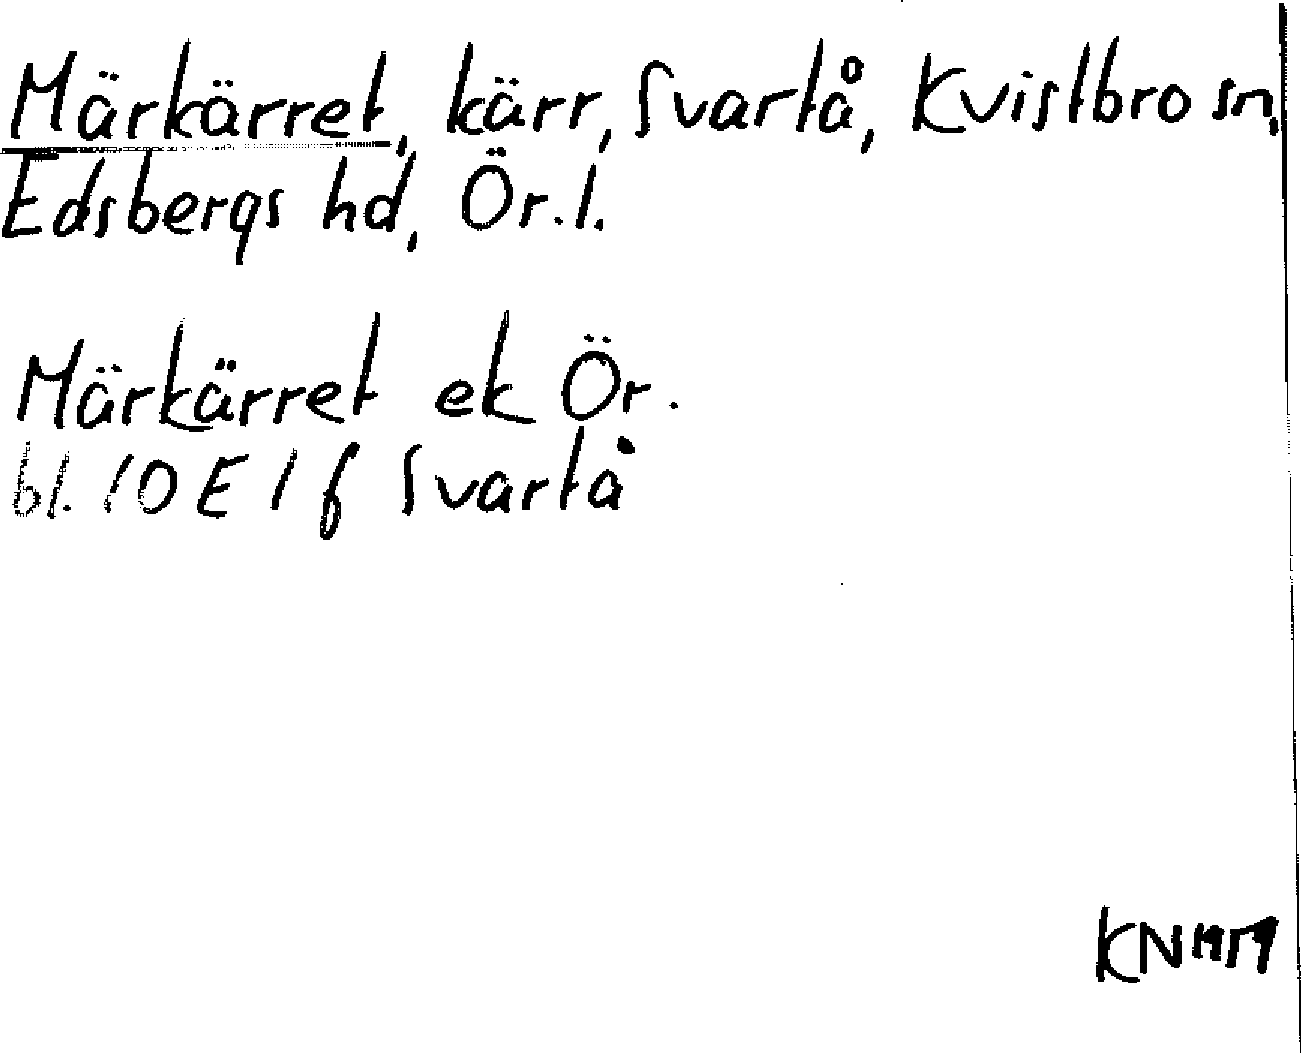 Märkärret, kärr, Svartå, Kvistbro sn,
Edsbergs hd, Ör.l.
Märkärret ek Ör.
bl. 10 E 1 f Svartå